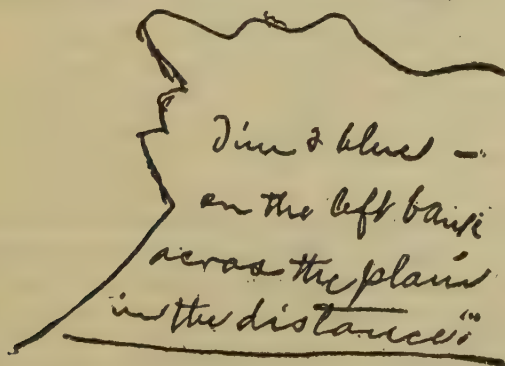 Dim & blue —
on the left bank
across the plain
in the distance."